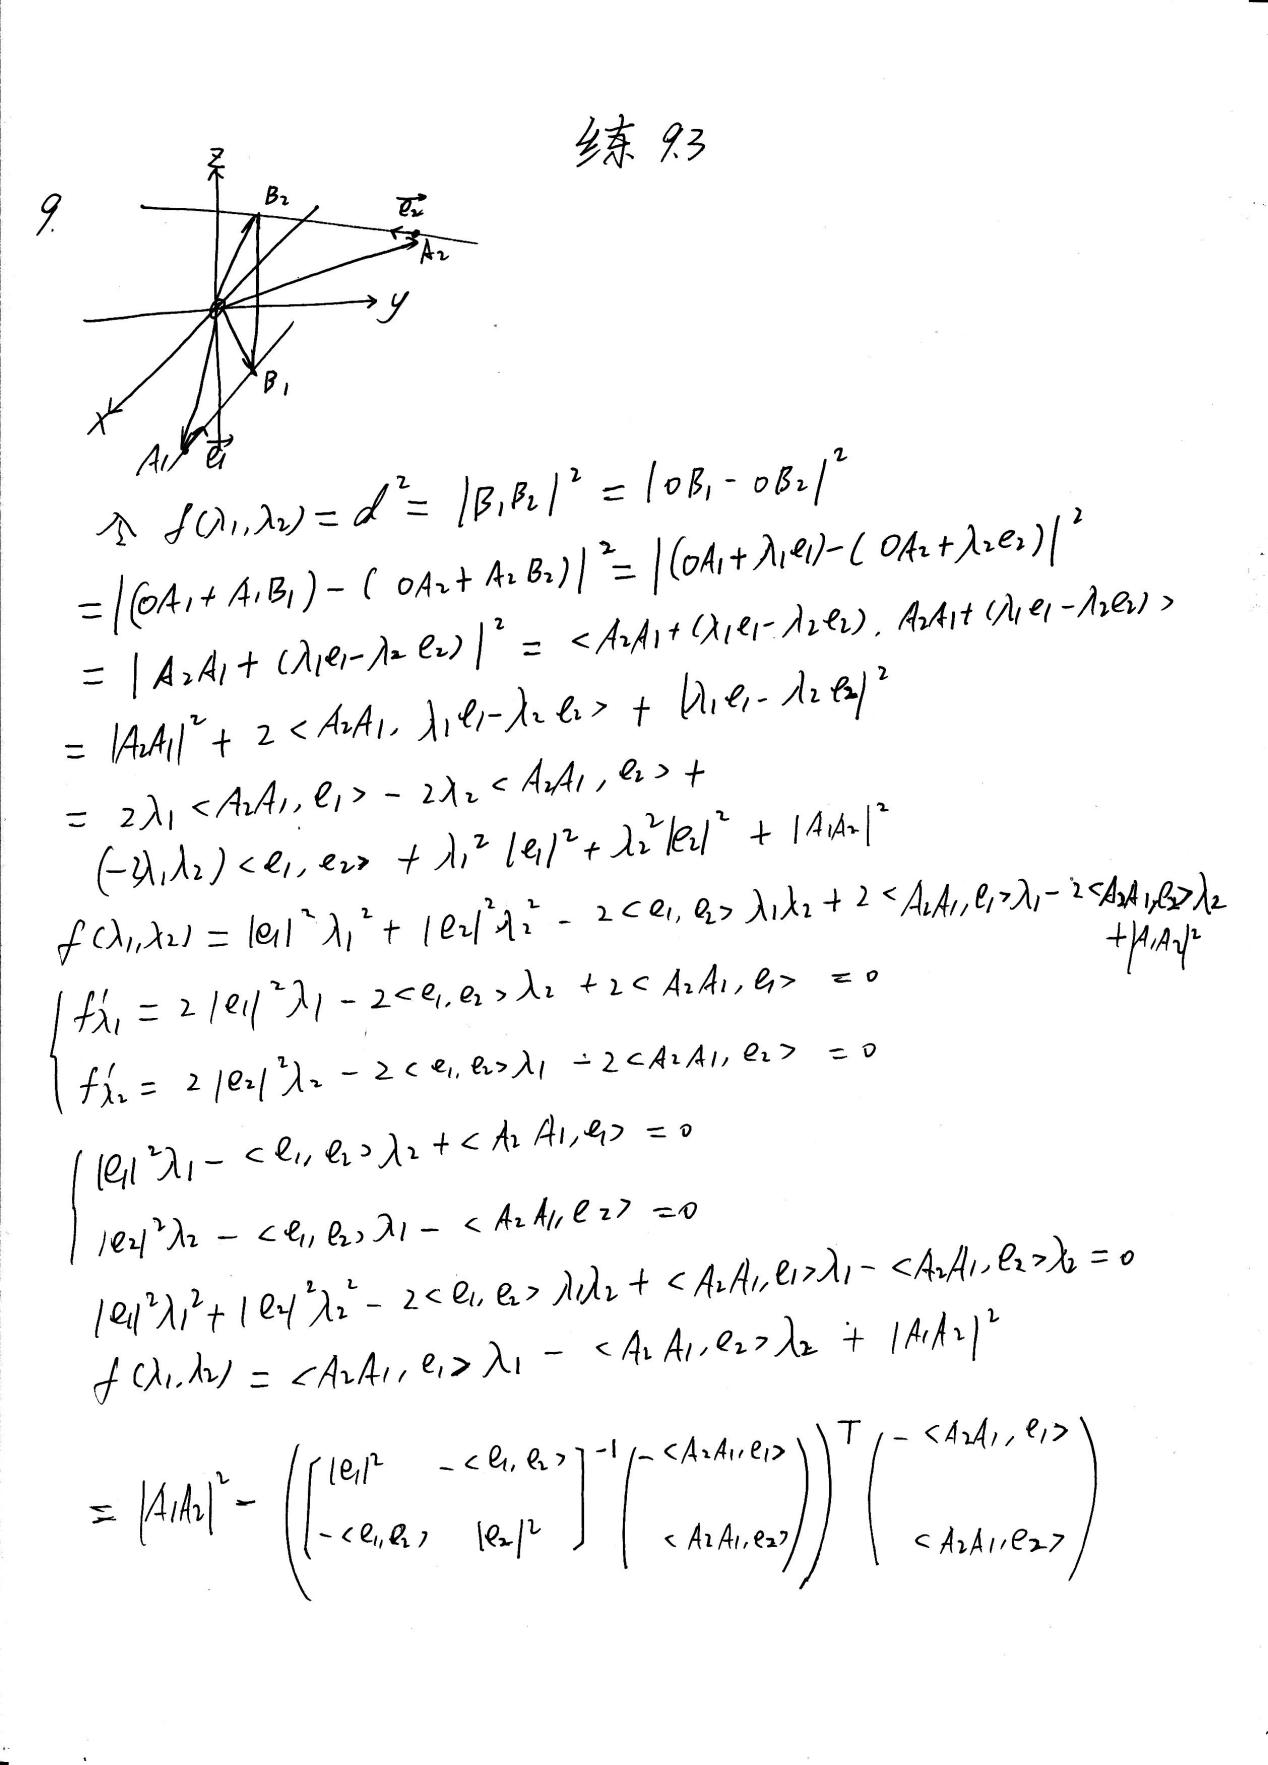 练 9.3
9.
z
B₂
e₂
A₂
y
B₁
x
A₁
e₁
令 f(λ₁,λ₂) = d² = |B₁B₂|² = |OB₁ - OB₂|²
= |(OA₁ + A₁B₁) - (OA₂ + A₂B₂)|² = |(OA₁ + λ₁e₁) - (OA₂ + λ₂e₂)|²
= |A₂A₁ + (λ₁e₁ - λ₂e₂)|² = <A₂A₁ + (λ₁e₁ - λ₂e₂), A₂A₁ + (λ₁e₁ - λ₂e₂)>
= |A₂A₁|² + 2<A₂A₁, λ₁e₁ - λ₂e₂> + |λ₁e₁ - λ₂e₂|²
= 2λ₁<A₂A₁, e₁> - 2λ₂<A₂A₁, e₂> +
(-2λ₁λ₂)<e₁, e₂> + λ₁²|e₁|² + λ₂²|e₂|² + |A₁A₂|²
f(λ₁,λ₂) = |e₁|²λ₁² + |e₂|²λ₂² - 2<e₁, e₂>λ₁λ₂ + 2<A₂A₁, e₁>λ₁ - 2<A₂A₁, e₂>λ₂
+ |A₁A₂|²
f'λ₁ = 2|e₁|²λ₁ - 2<e₁, e₂>λ₂ + 2<A₂A₁, e₁> = 0
f'λ₂ = 2|e₂|²λ₂ - 2<e₁, e₂>λ₁ - 2<A₂A₁, e₂> = 0
|e₁|²λ₁ - <e₁, e₂>λ₂ + <A₂A₁, e₁> = 0
|e₂|²λ₂ - <e₁, e₂>λ₁ - <A₂A₁, e₂> = 0
|e₁|²λ₁² + |e₂|²λ₂² - 2<e₁, e₂>λ₁λ₂ + <A₂A₁, e₁>λ₁ - <A₂A₁, e₂>λ₂ = 0
f(λ₁,λ₂) = <A₂A₁, e₁>λ₁ - <A₂A₁, e₂>λ₂ + |A₁A₂|²
= |A₁A₂|² - ([|e₁|² -<e₁, e₂>]⁻¹ (-<A₂A₁, e₁>))ᵀ (-<A₂A₁, e₁>)
-<e₁, e₂> |e₂|² <A₂A₁, e₂> <A₂A₁, e₂>